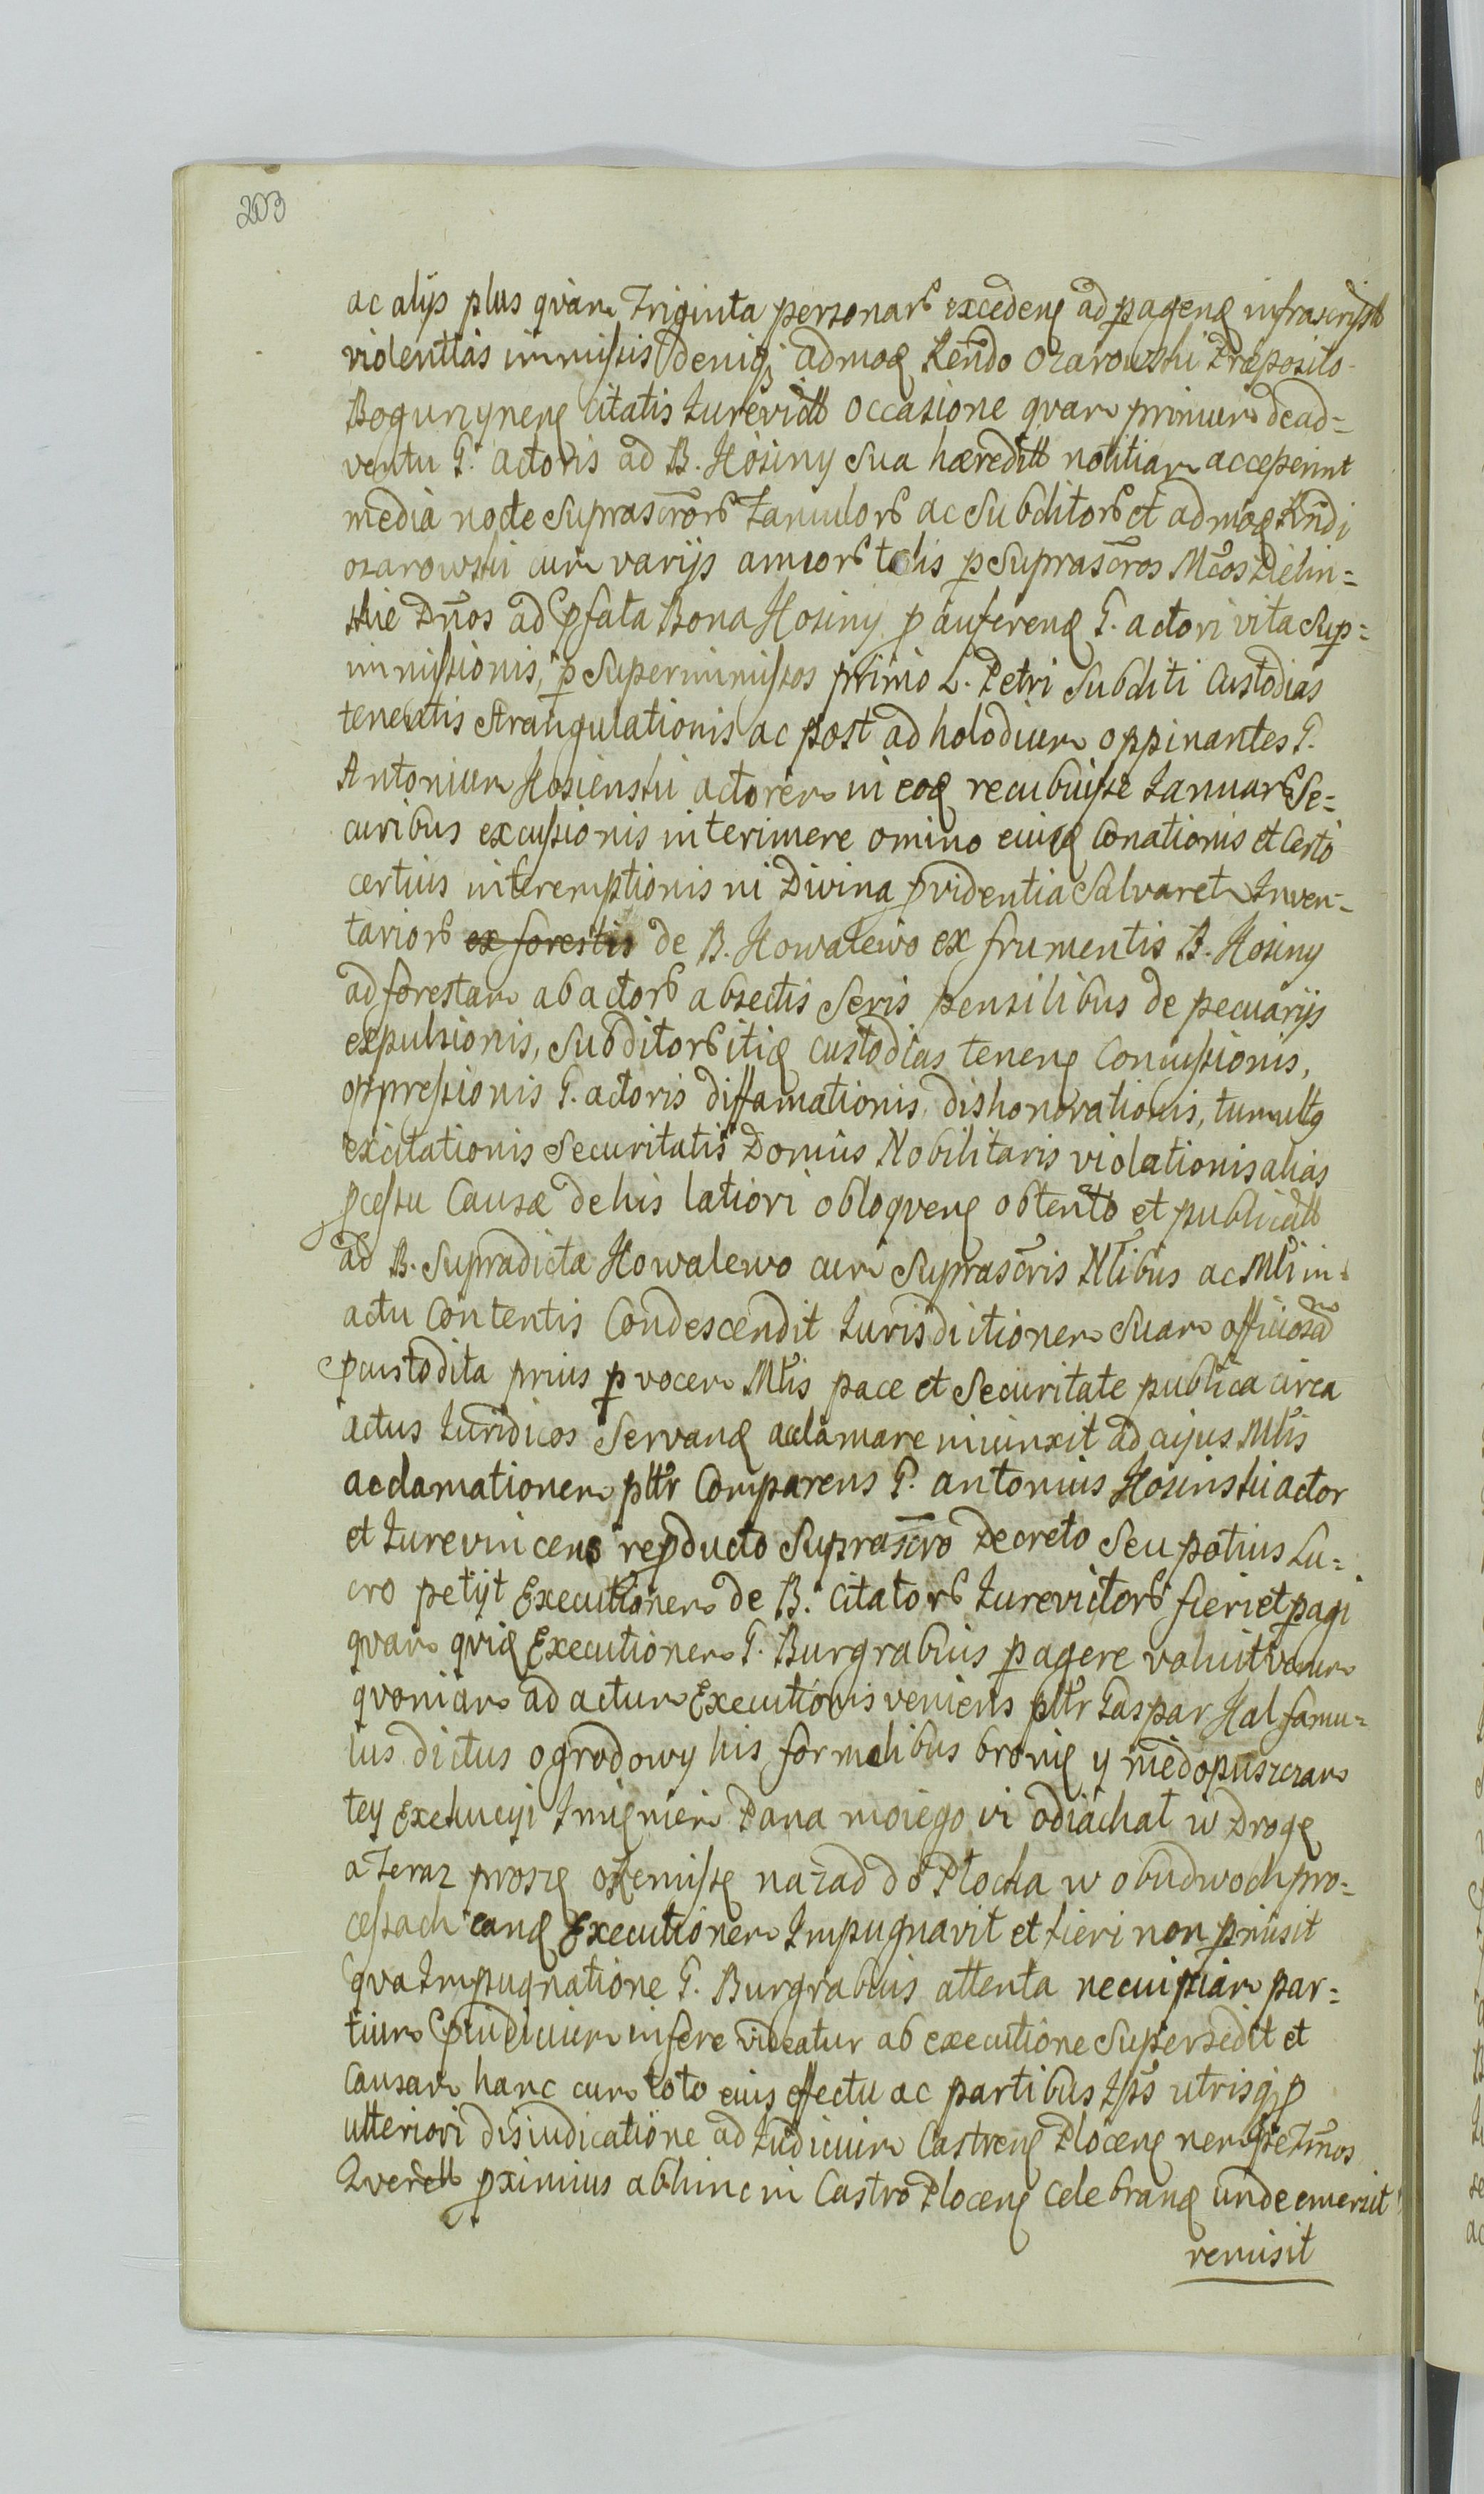 203
ac alijs plus qvam Triginta personarb excedenę ad pagenę infrascript
violentias immissis deniq; admoę Rendo Ozarowski Præposito
Bogurzynenę Citatis Jurevictt occasione qvam primum de ad=
ventu G. actoris ad B. Kosiny sua hæreditt notitiam acceperint
media nocte suprascrorb famulorb ac subditorb et admoę Rndi
Ozarowski cum varijs armorb telis p suprascros Mcos Zielin=
skie Dnos ad pfata Bona Kosiny p auferenę G. actori vita Sup=
immissionis, p superimmissos primo L. Petri subditi Custodias
tenentis strangulationis ac post ad holodium oppinantes G.
Antonium Kosienski actorem in eoę recubuisse Januarb Se=
curibus excussionis interimere omino eiuę Conationis et Certo
certius interemptionis ni Divina pvidentia Salvaret Inven=
tariorb ex forestis de B. Kowalewo ex frumentis B. Kosiny
ad forestam abactorb absectis seris pensilibus de pecuarijs
expulsionis, subditorb itię custodias tenenę Concussionis,
oppressionis G. actoris diffamationis, dishonorationis, tumultg
excitationis securitatis Domus Nobilitaris violationis alias
pcessu Causæ de his latiori obloqvenę obtento et publicatt
ad B. supradicta Kowalewo cum suprascris Nlibus ac Mli in
actu Contentis Condescendit Jurisdictionem Suam officiosam
pcustodita prius p vocem Mlis pace et Securitate publica circa
actus Juridicos Servanę acclamare iniunxit ad cujus Mlis
acclamationem pltr Comparens G. antonius Kosinski actor
et Jurevincens repducto suprascro Decreto seu potius Lu=
cro petijt Executionem de B. citatorb Jurevictorb fieri et pagi
qvam qvię Executionem G. Burgrabius pagere voluit verum
qvoniam ad actum Executionis veniens pltr Gaspar Kal famu=
lus dictus ogrodowy his formalibus bronię y niedopuszczam
tey Exekucyi Imięniem Pana moiego vi odiachał w Drogę
a Teraz proszę o Remissę nazad do Płocka w obudwoch pro=
cessach eanę Executionem Impugnavit et fieri non pmisit
qva Impugnatione G. Burgrabius attenta ne cuipiam par=
tium pjudicium inferre videatur ab executione Supersedit et
Causam hanc cum toto eius effectu ac partibus Ips utrisq; p
ulteriori disiudicatione ad Judicium Castrenę Plocenę nempe Tmos
Querell pximius abhinc in Castro Plocenę celebranę unde emersit
remisit